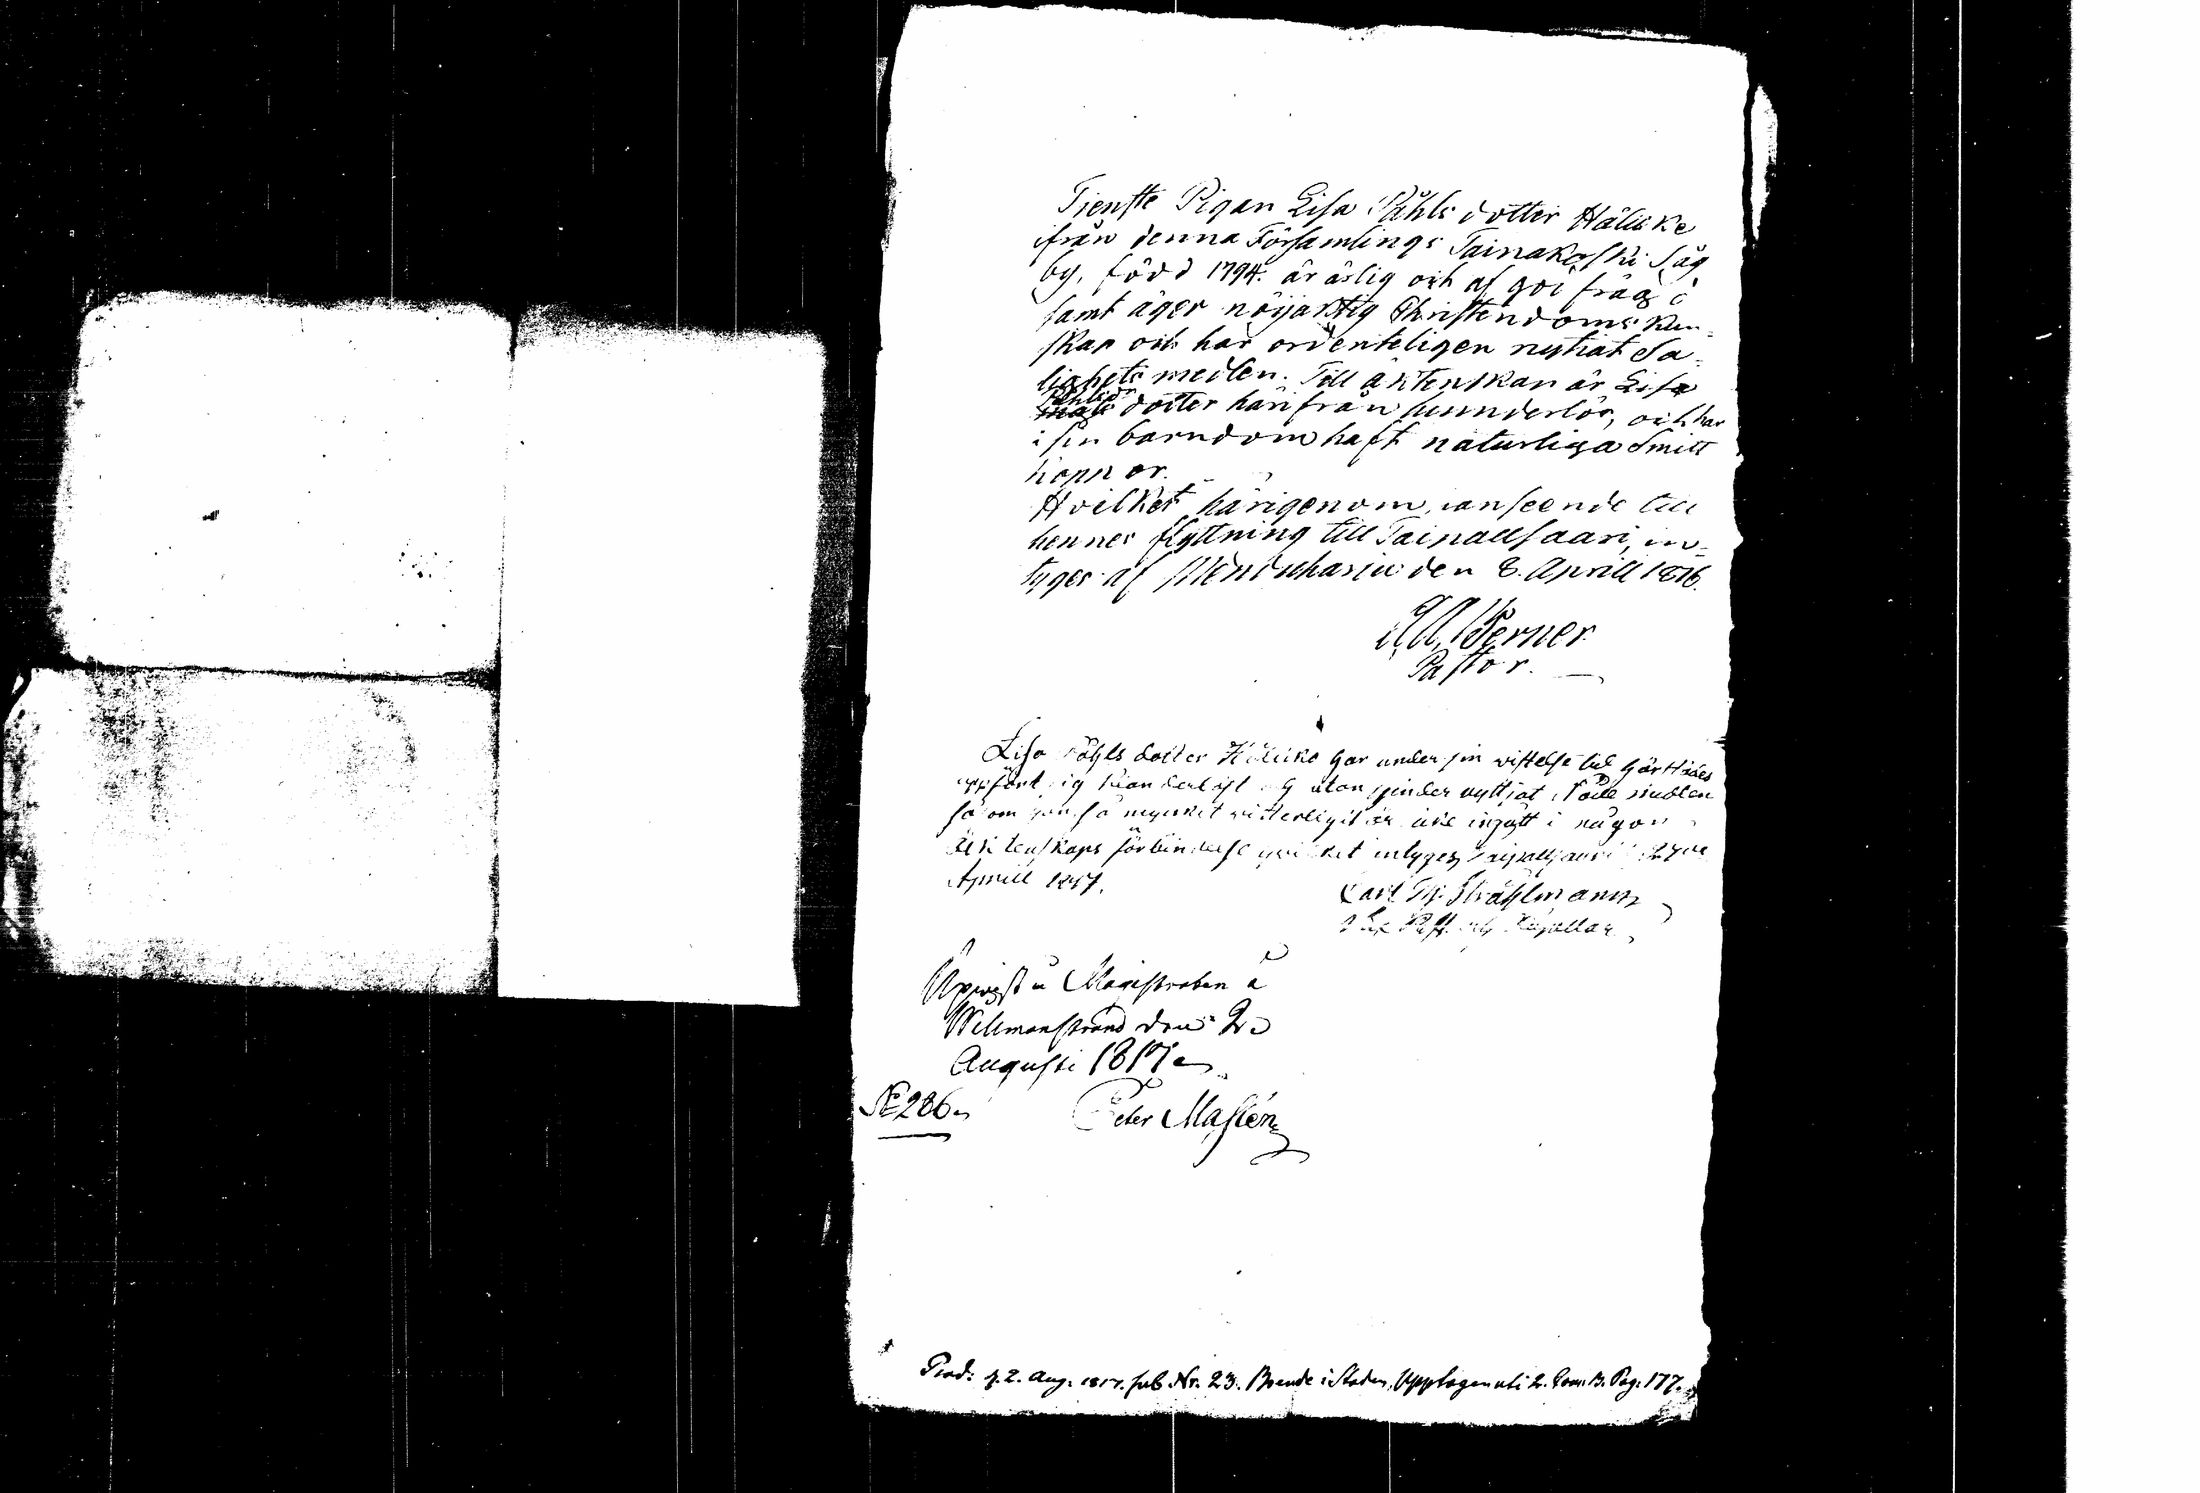 Tienste Pigan Lisa Påhls dotter Hälicke
ifrån denna Församlings Tainakoski Såg
by, född 1794. är ärlig och af god frägd
samt äger nöijaktig Christendoms kun-
skap och har ordenteligen nyttiat Sa-
lighets medlen. Till äktenskap är Lisa
Påhls dotter härifrån hinderlös, och har
i sin barndom haft naturliga Smitt
koppor.
Hvilket härigenom, i anseende till
hennes flyttning till Taipallsaari, in-
tyges af Menduharju den 8. Aprill 1816.
Werner
Pastor.
Lisa Påhls dotter Hälicke har under sin vistelse
uppfört sig klanderlöst och utan hinder nyttjat Nåde medlen
så som hon så mycket vitterligit är icke ingått i någon
äktenskaps förbindelse hvilket intyges Taipallsaari
Aprill 1817.
Carl Stråhlmann
Kapellan
Upvist i Magistraten i
Willmanstrand den 2
Augusti 1817
№ 286
Peter Maslén
Prod: d. 2. Aug. 1817. sub Nr. 23. Boende i Staden, Upptagen uti 2. Com. B. Pag: 177.